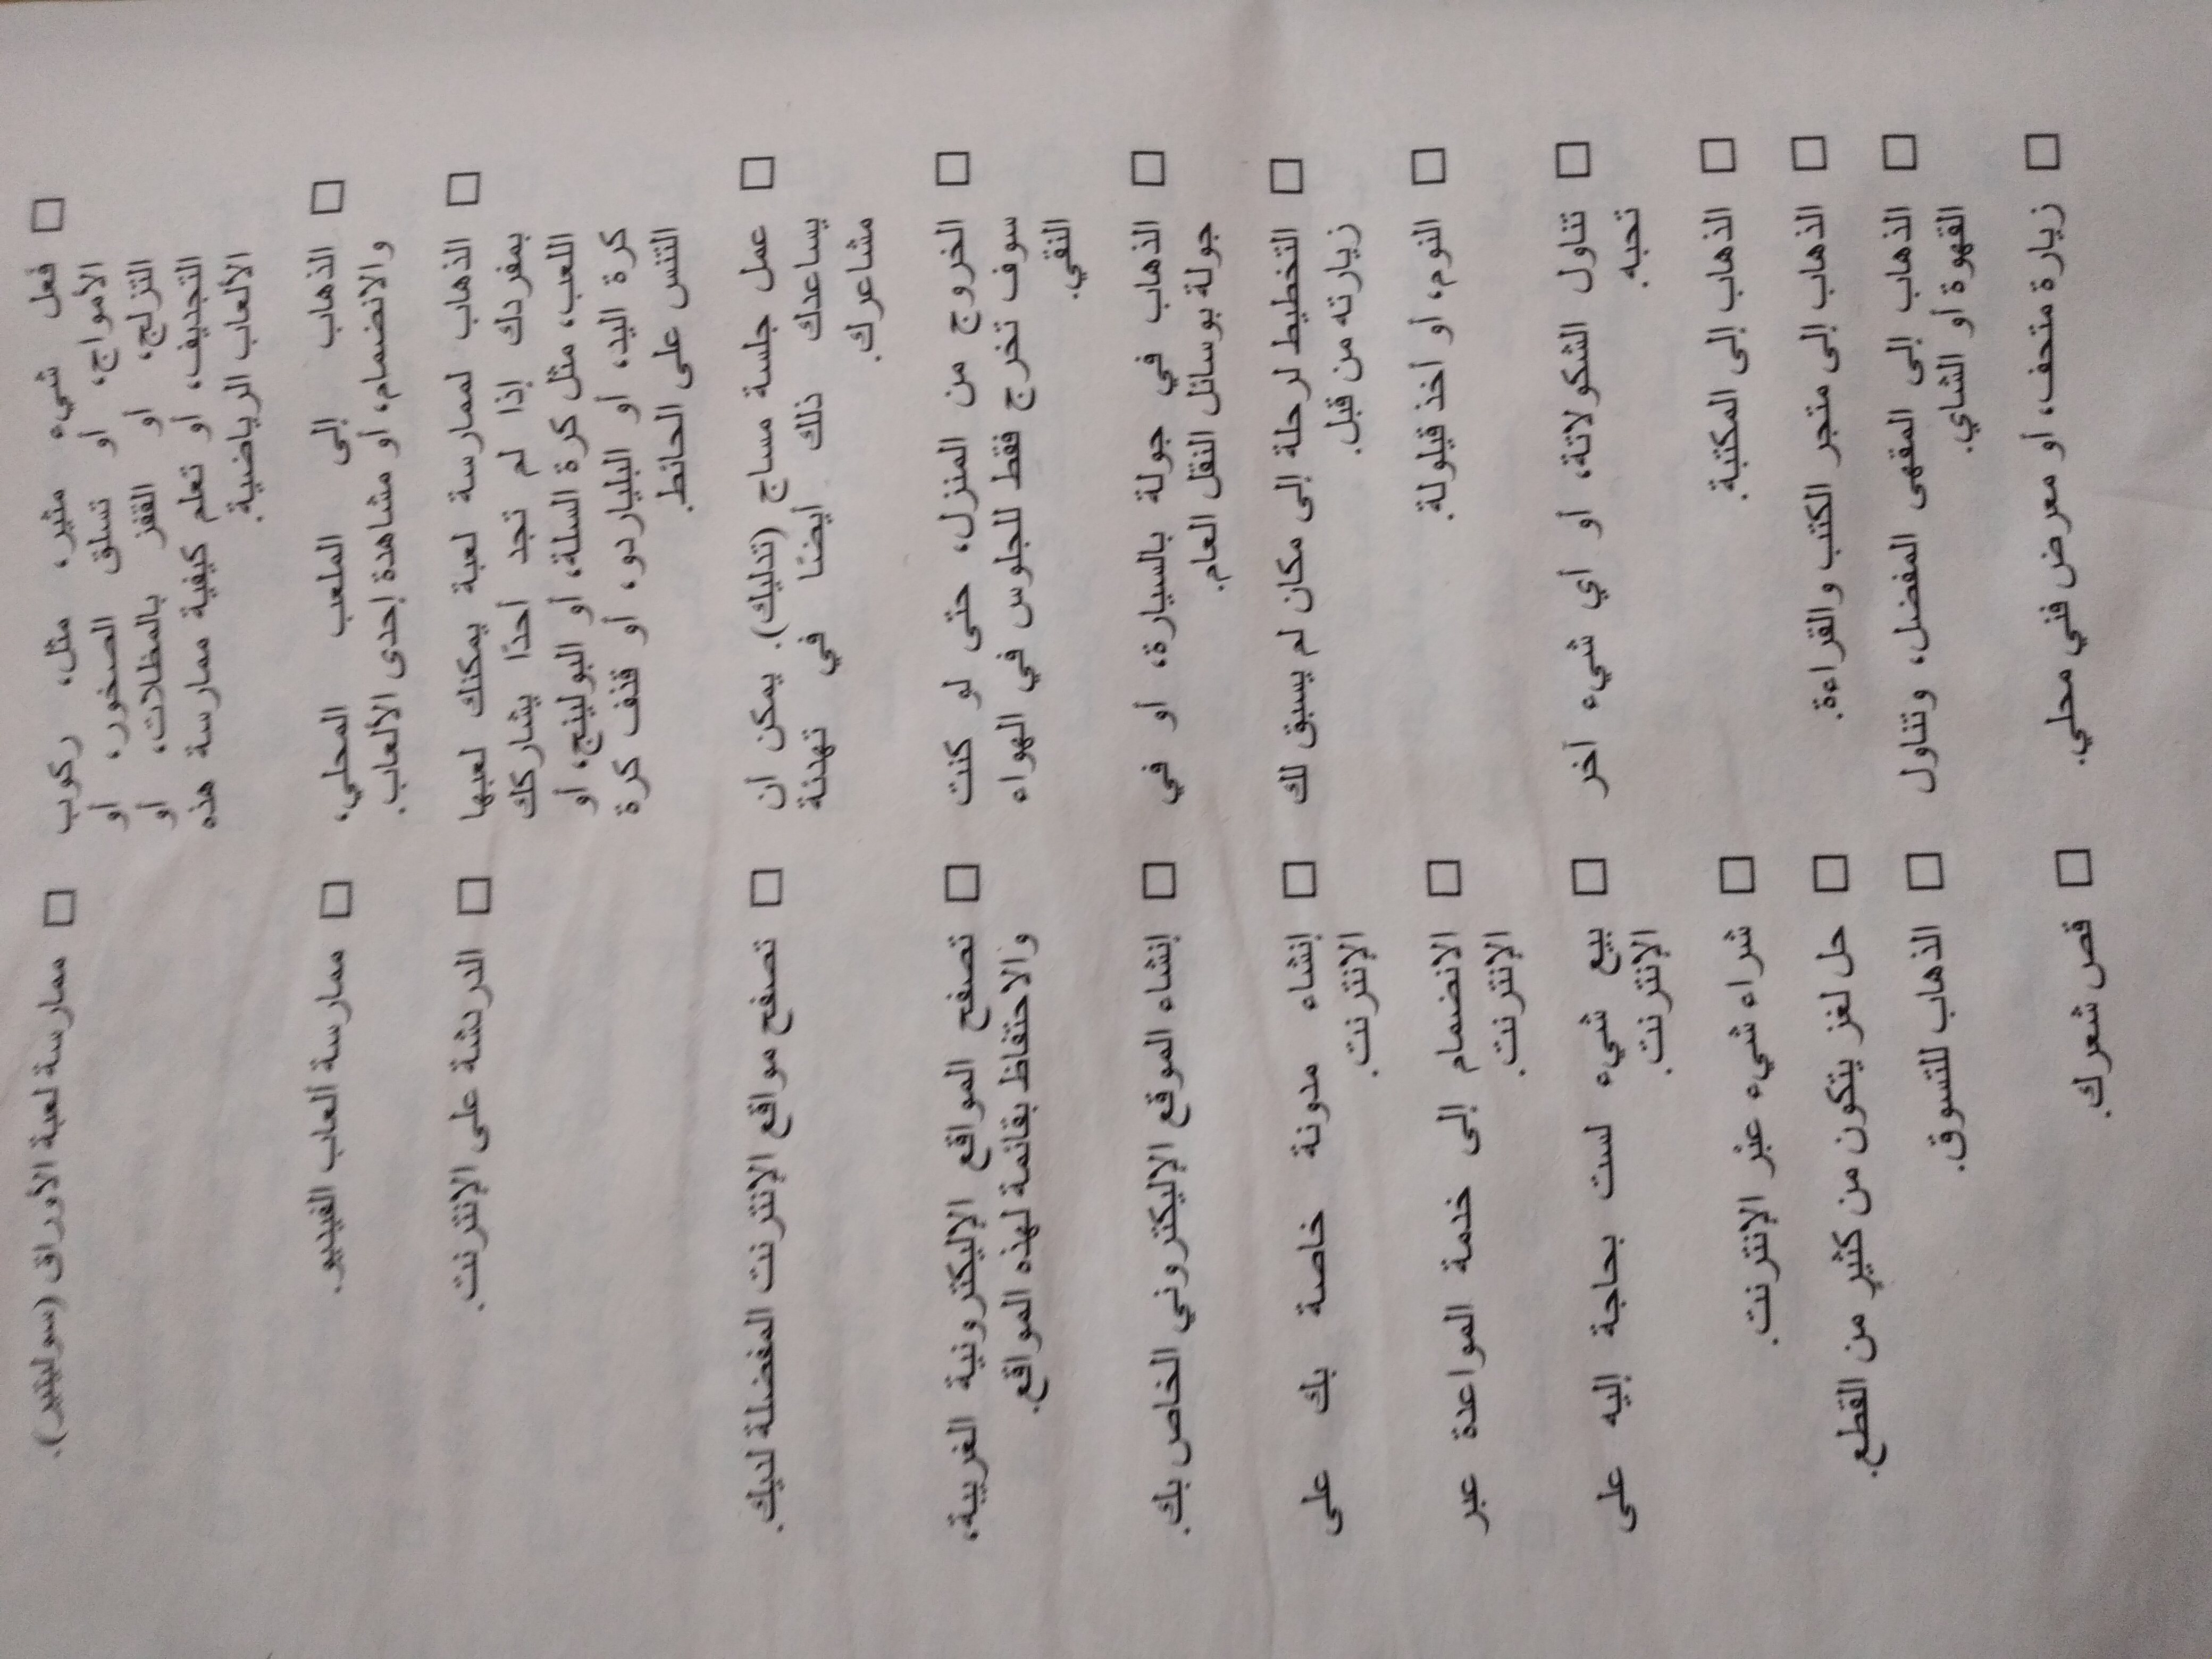 فعل شيء مثير، مثل، ركوب
الأمواج، أو تسلق الصخور، أو
التزلج، أو القفز بالمظلات، أو
التجديف، أو تعلم كيفية ممارسة هذه
الألعاب الرياضية.
الذهاب إلى الملعب المحلي،
والانضمام، أو مشاهدة إحدى الألعاب.
الذهاب لممارسة لعبة يمكنك لعبها
بمفردك إذا لم تجد أحدًا يشاركك
اللعب، مثل كرة السلة، أو البولينج، أو
كرة اليد، أو البلياردو، أو قذف كرة
التنس على الحائط.
عمل جلسة مساج (تدليك). يمكن أن
يساعدك ذلك أيضًا في تهدئة
مشاعرك.
الخروج من المنزل، حتى لو كنت
سوف تخرج فقط للجلوس في الهواء
النقي.
الذهاب في جولة بالسيارة، أو في
جولة بوسائل النقل العام.
التخطيط لرحلة إلى مكان لم يسبق لك
زيارته من قبل.
النوم، أو أخذ قيلولة.
تناول الشكولاتة، أو أي شيء آخر
تحبه.
الذهاب إلى المكتبة.
الذهاب إلى متجر الكتب والقراءة.
الذهاب إلى المقهى المفضل، وتناول
القهوة أو الشاي.
زيارة متحف، أو معرض فني محلي.
ممارسة لعبة الأوراق (سوليتير).
ممارسة ألعاب الفيديو.
الدردشة على الإنترنت.
تصفح مواقع الإنترنت المفضلة لديك.
تصفح المواقع الإليكترونية الغريبة،
والاحتفاظ بقائمة لهذه المواقع.
إنشاء الموقع الإليكتروني الخاص بك.
إنشاء مدونة خاصة بك على
الإنترنت.
الانضمام إلى خدمة المواعدة عبر
الإنترنت.
بيع شيء لست بحاجة إليه على
الإنترنت.
شراء شيء عبْر الإنترنت.
حل لغز يتكون من كثير من القطع.
الذهاب للتسوق.
قص شعرك.